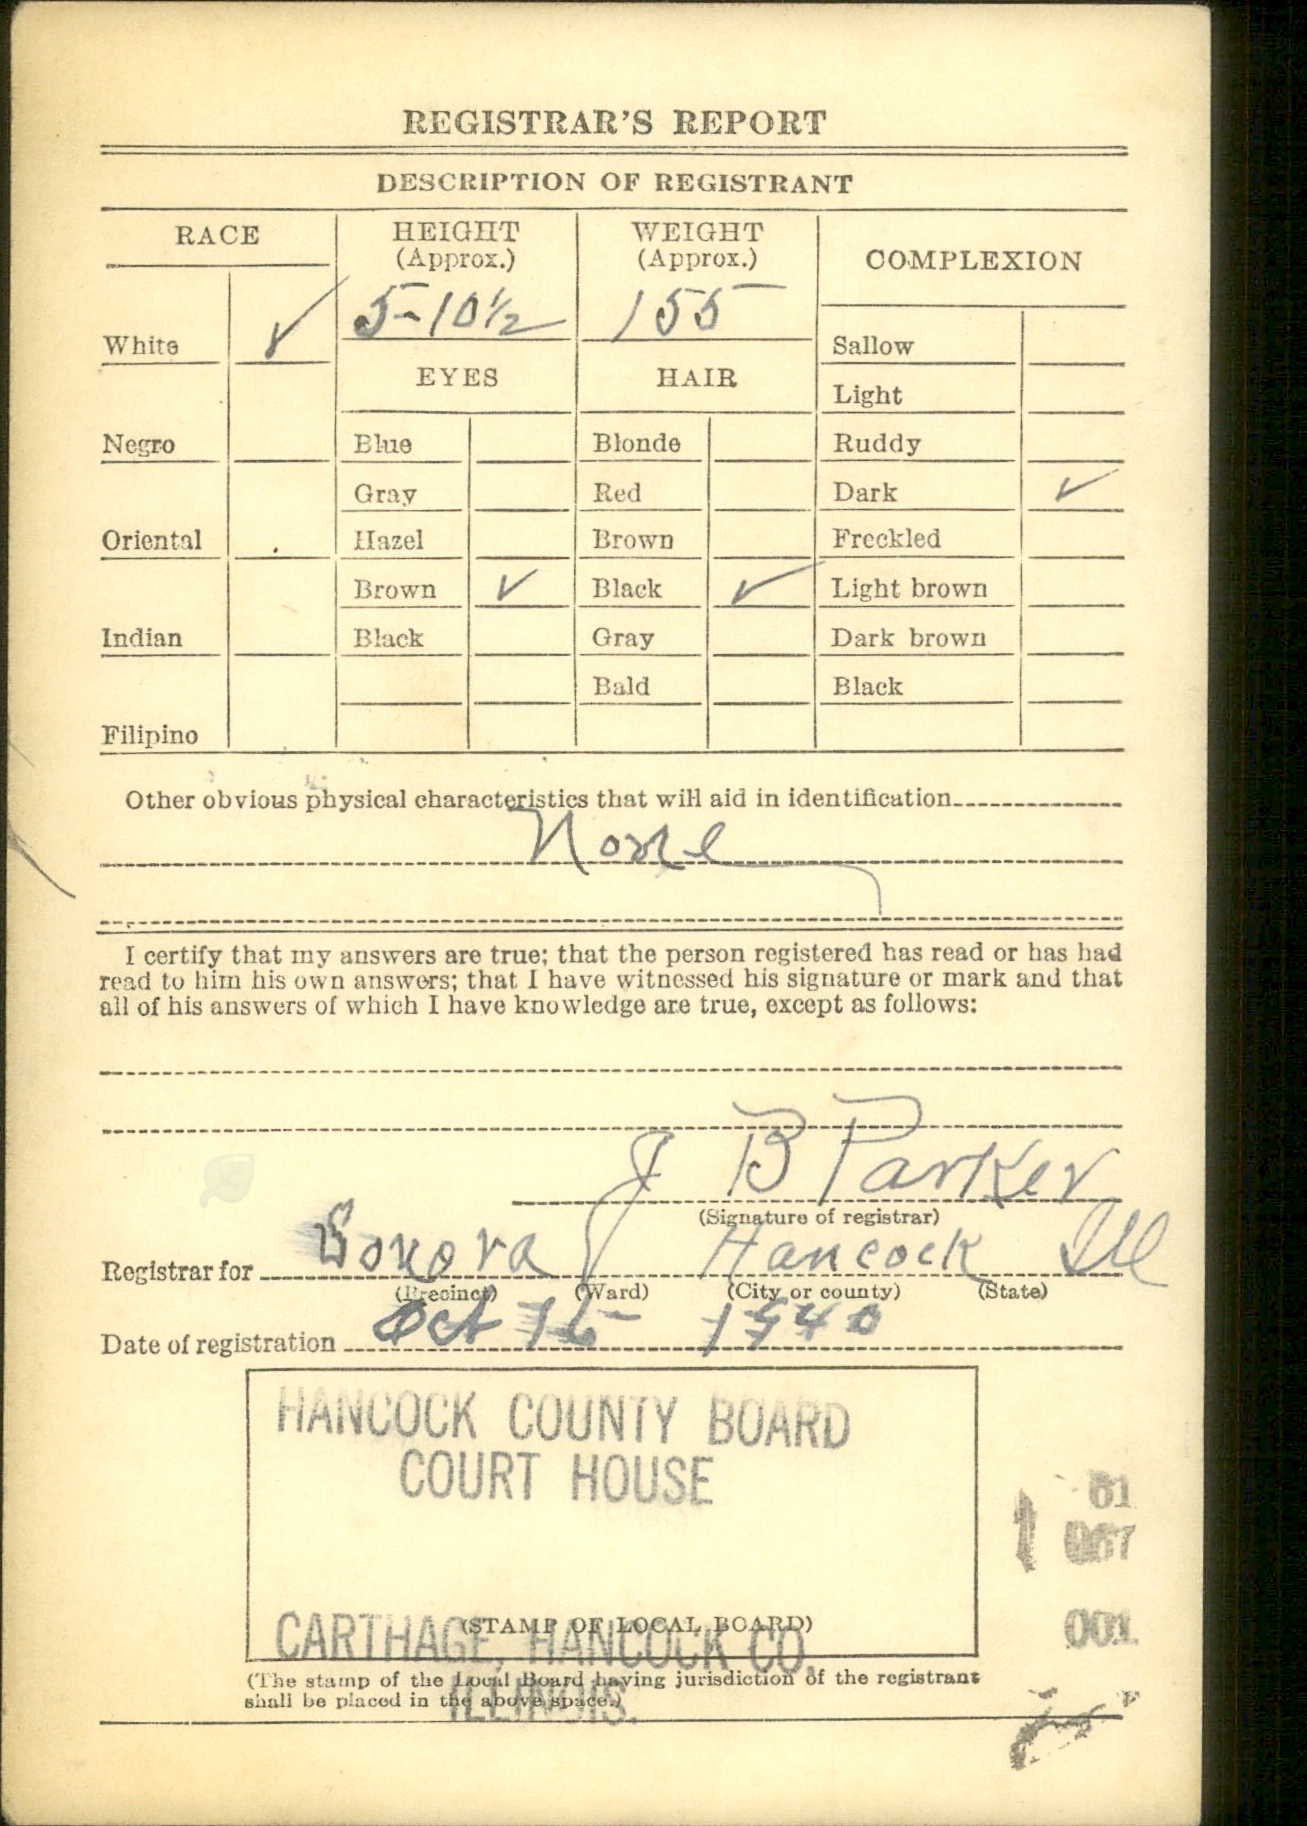 REGISTRAR'S REPORT
DESCRIPTION OF REGISTRANT
RACE
HEIGHT
(Approx.)
WEIGHT
(Approx.)
COMPLEXION
5-10½
155
White ✓
Sallow
EYES
HAIR
Light
Negro
Blue
Blonde
Ruddy
Gray
Red
Dark ✓
Oriental
Hazel
Brown
Freckled
Brown ✓
Black ✓
Light brown
Indian
Black
Gray
Dark brown
Bald
Black
Filipino
Other obvious physical characteristics that will aid in identification
None
I certify that my answers are true; that the person registered has read or has had
read to him his own answers; that I have witnessed his signature or mark and that
all of his answers of which I have knowledge are true, except as follows:
J B Parker
(Signature of registrar)
Registrar for Sonora Hancock Ill
(Precinct) (Ward) (City or county) (State)
Date of registration Oct 16 1940
HANCOCK COUNTY BOARD
COURT HOUSE
1
001
(STAMP OF LOCAL BOARD)
CARTHAGE, HANCOCK CO.
(The stamp of the Local Board having jurisdiction of the registrant
shall be placed in the above space.)
ILLINOIS.